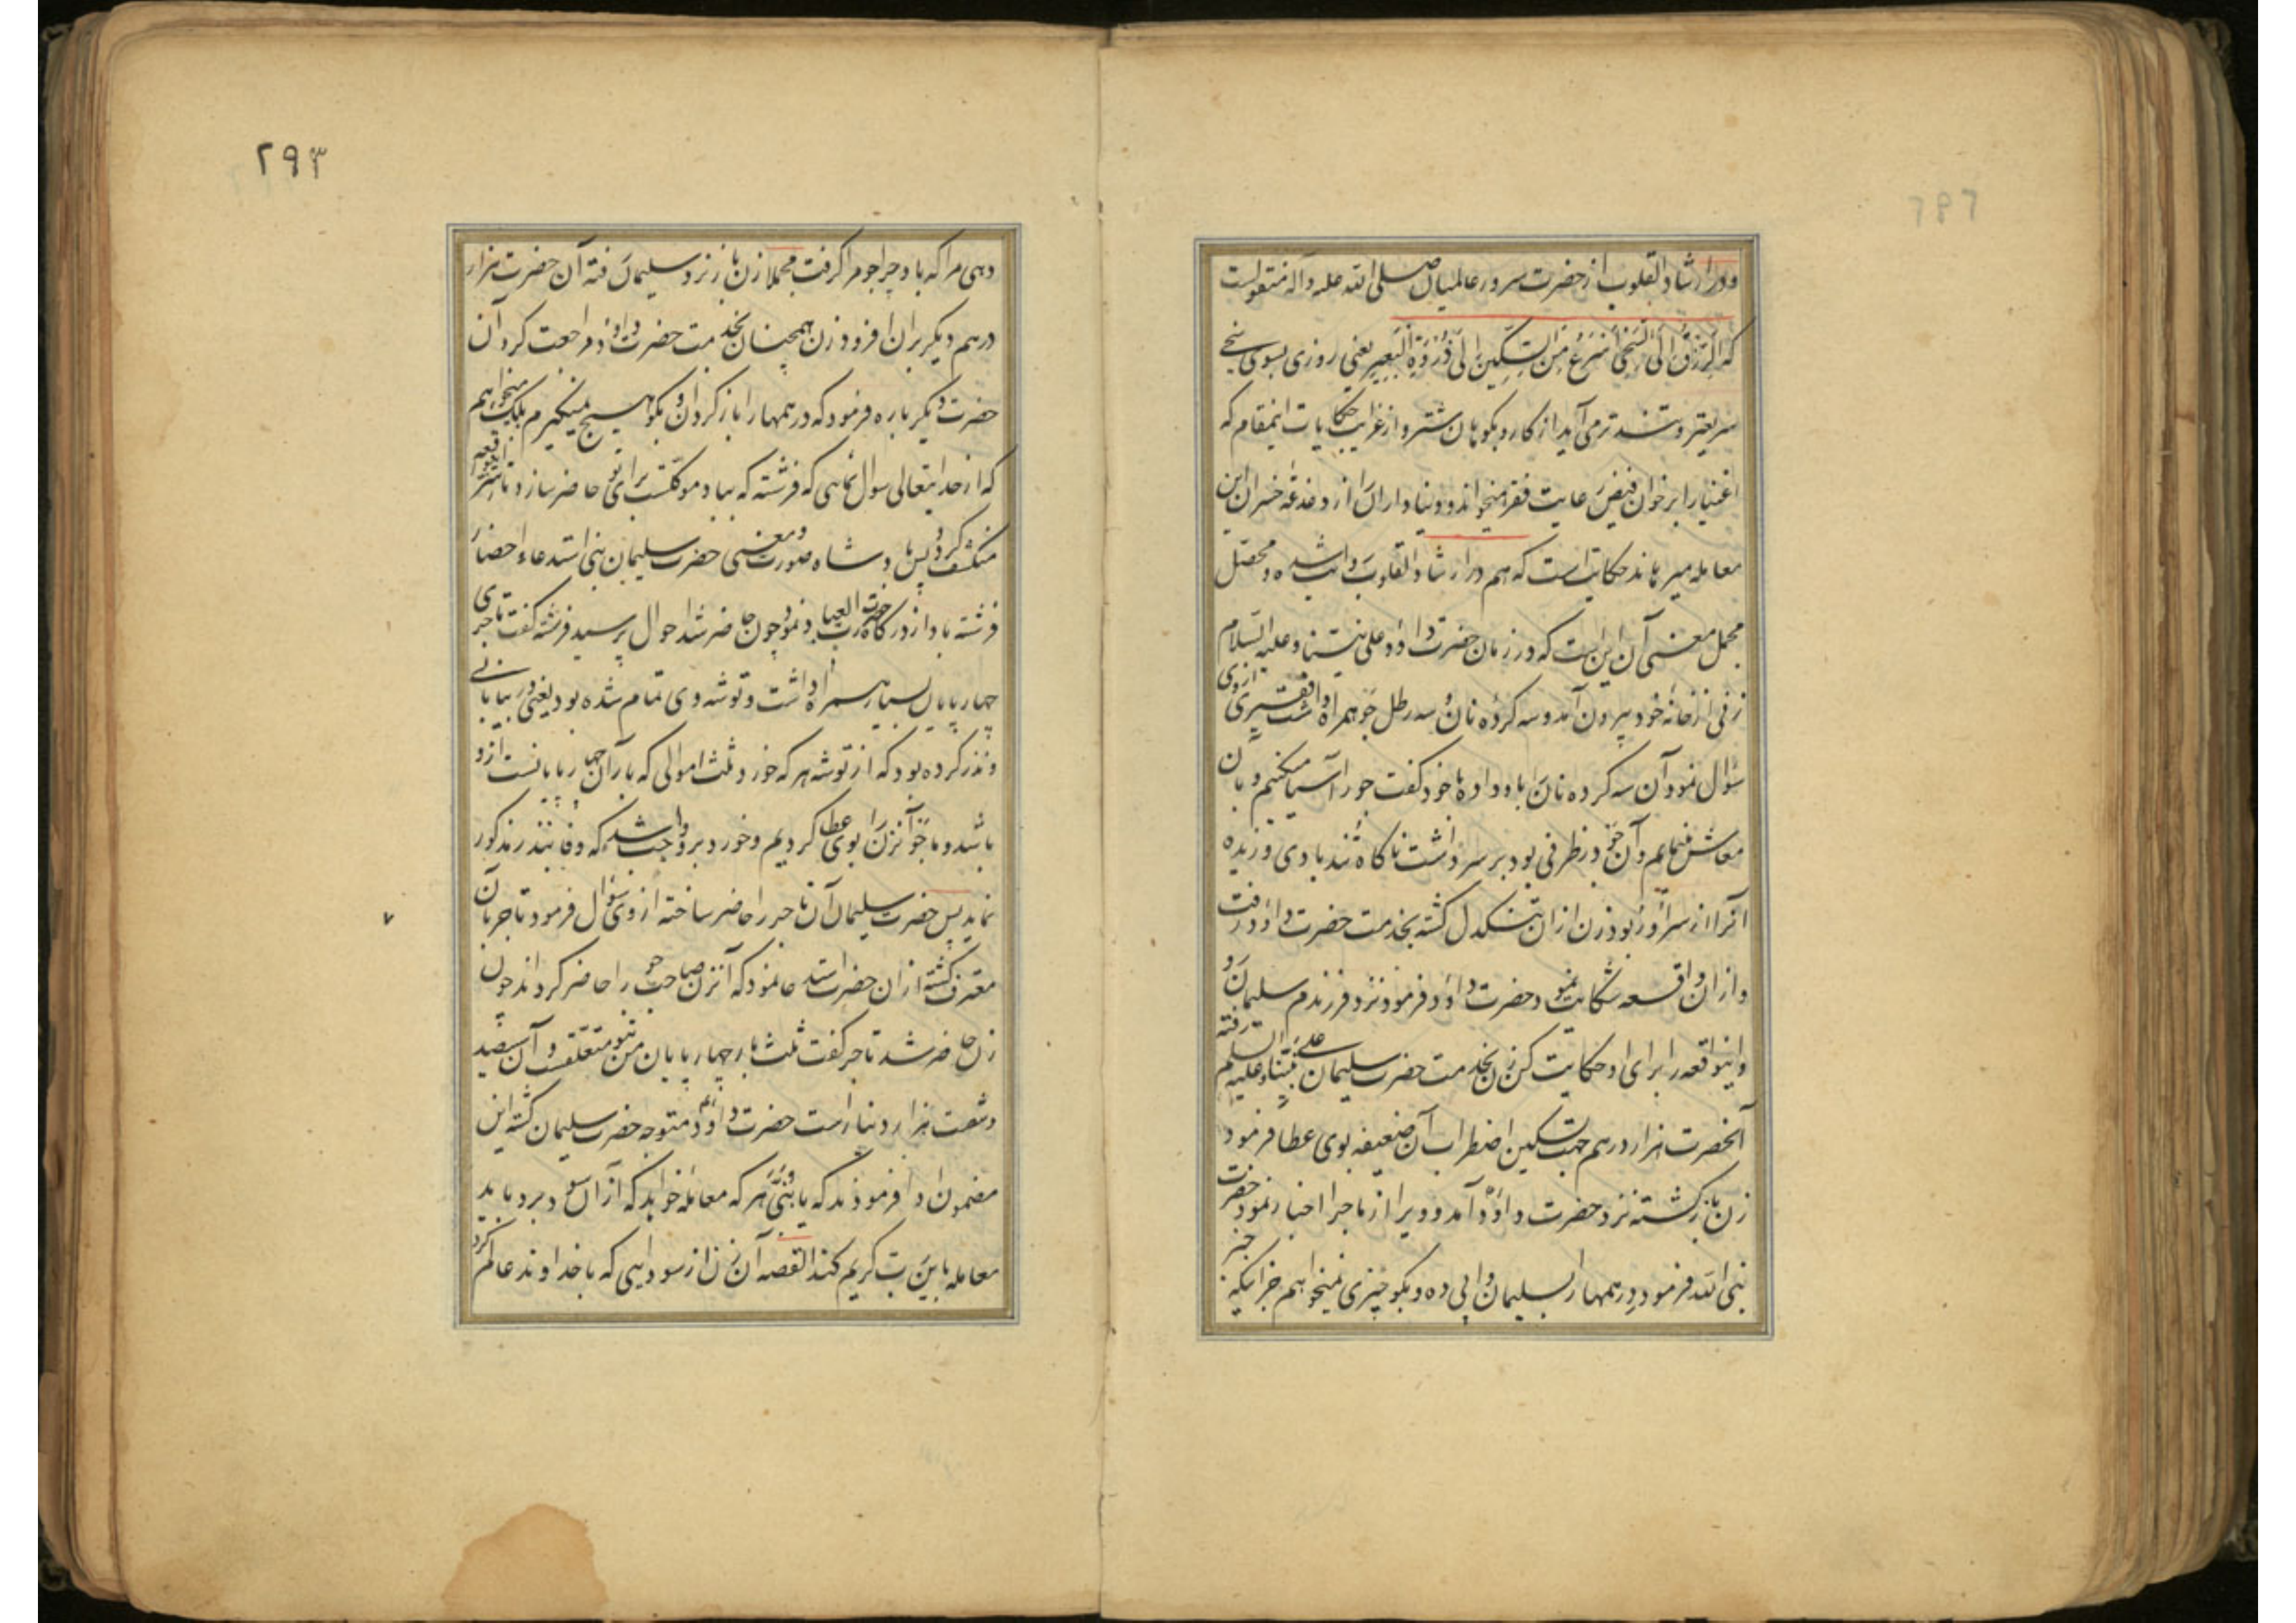 و در ارشاد القلوب از حضرت سرور عالمیان صلی الله علیه و آله منقولست
که الرزق الی السخی اسرع من السکین الی ذروة البعیر یعنی روزی بسوی سخی
سریعتر و تندتر می آید از کارد بکوهان شتر و از غرایب حکایات اینمقام که
اغنیا را بر خوان فیض رعایت فقرا میخواند و دنیاداران را از دغدغه خسران این
معامله میرهاند حکایتیست که هم در ارشاد القلوب وارد شده و محصل
مجمل معنی آن اینست که در زمان حضرت داود علی نبینا و علیه السلام
زنی از خانه خود بیرون آمد و سه کرده نان و سه رطل جو همراه داشت فقیری از وی
سؤال نمود آن سه کرده نان را باو داد و با خود کفت جو را آسیا میکنیم و بآن
معاش مینمایم و آن جو در ظرفی بود بر سر داشت ناکاه تند بادی وزیده
آنرا از سر او ربود زن ازان تنکدل کشته بخدمت حضرت داود رفت
و ازان واقعه شکایت نمود حضرت داود فرمود نزد فرزندم سلیمان رو
و اینواقعه را برای او حکایت کن زن بخدمت حضرت سلیمان علی نبینا و علیه السلام رفته
آنحضرت هزار درهم جهت تسکین اضطراب آن ضعیفه بوی عطا فرمود
زن باز کشته نزد حضرت داود آمد و ویرا از ماجرا اخبار نمود حضرت
نبی الله فرمود درهمها را بسلیمان واپس ده و بکو چیزی نمیخواهم جز اینکه خبر
۲۹۳
دهی مرا که باد چرا جو مرا کرفت مجملا زن باز نزد سلیمان رفته آن حضرت هزار
درهم دیکر بران افزود زن همچنان بخدمت حضرت داود مراجعت کرد آن
حضرت دیکر باره فرمود که درهمها را باز کردان و بکو هیچ نمیکیرم بلکه میخواهم
که از خدایتعالی سوال نمایی که فرشته که بباد موکلست برای تو حاضر سازد تا سر اینواقعه
منکشف کردد پس پادشاه صورت و معنی حضرت سلیمان نبی استدعاء احضار
فرشته باد از درکاه حضرت رب العباد نمود چون حاضر شد احوال پرسید فرشته کفت تاجری
چهارپایان بسیار همراه داشت و توشه وی تمام شده بود یعنی در بیابانی
و نذر کرده بود که از توشه هر که خورد ثلث اموالی که بار آن چهارپایانست ازو
باشد و ما جو آنزن را بوی عطا کردیم و خورد برو واجب شد که وفا بنذر مذکور
نماید پس حضرت سلیمان آن تاجر را حاضر ساخته از وی سؤال فرمود تاجر بآن
معترف کشته ازان حضرت استدعا نمود که آنزن صاحب جو را حاضر کرداند چون
زن حاضر شد تاجر کفت ثلث بار چهارپایان من بتو متعلقست و آن سیصد
و شصت هزار دینارست حضرت داود متوجه حضرت سلیمان کشته این
مضمون ادا فرمودند که یا بنی هر که معامله خواهد که ازان سود برد باید
معامله باین رب کریم کند القصه آن زن از سودایی که با خداوند عالم کرد